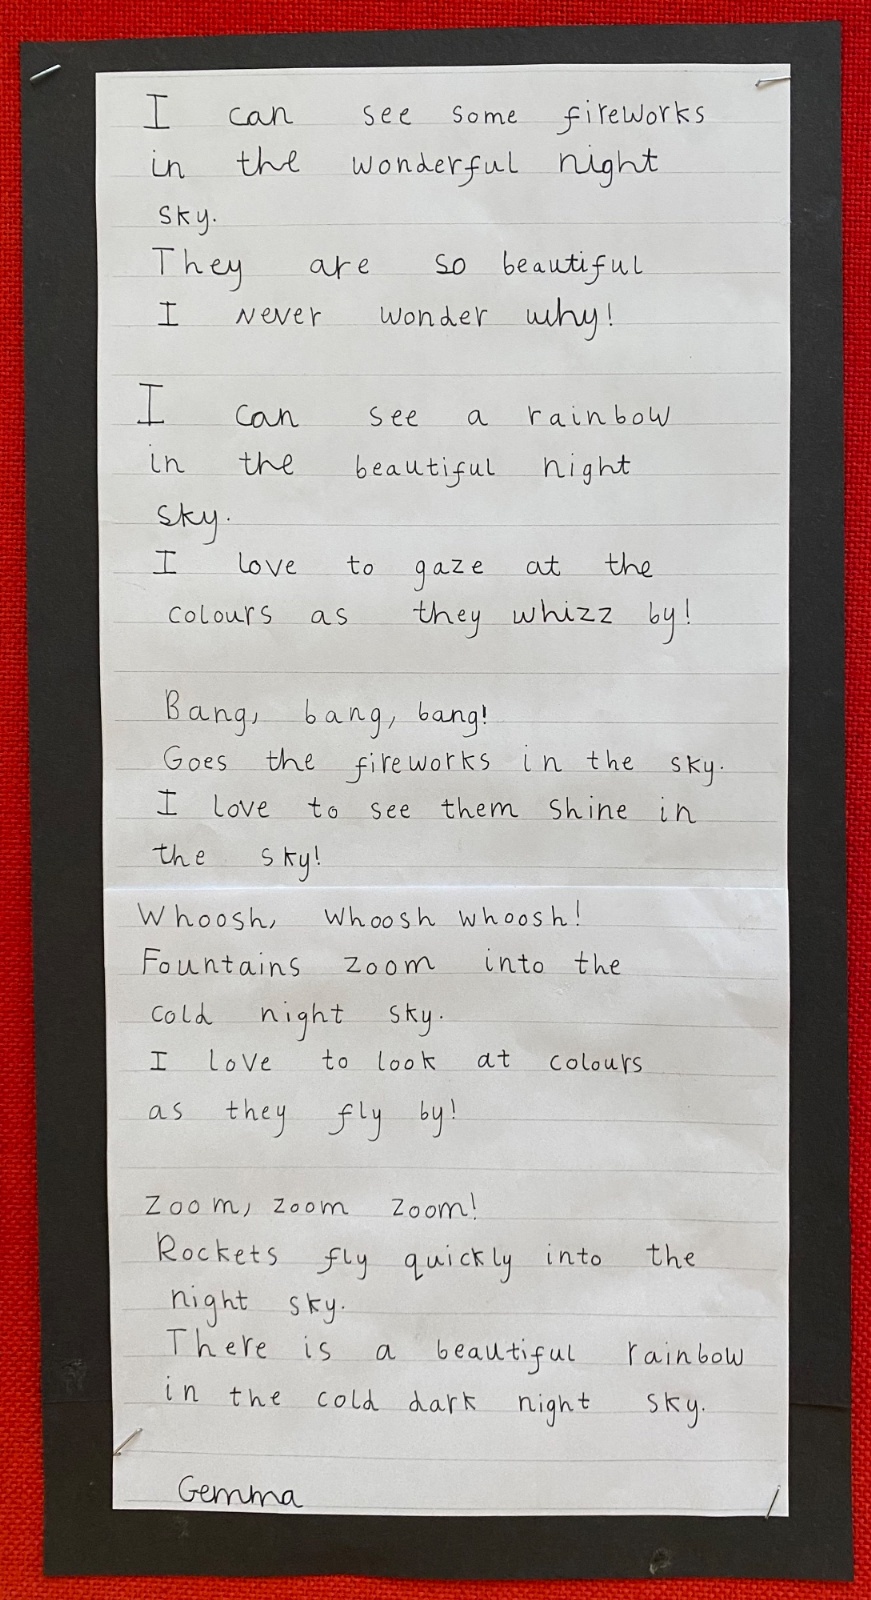 I can see some fireworks
in the wonderful night
sky.
They are so beautiful
I never wonder why!
I can see a rainbow
in the beautiful night
sky.
I love to gaze at the
colours as they whizz by!
Bang, bang, bang!
Goes the fireworks in the sky.
I love to see them shine in
the sky!
Whoosh, whoosh whoosh!
Fountains zoom into the
cold night sky.
I love to look at colours
as they fly by!
Zoom, zoom zoom!
Rockets fly quickly into the
night sky.
There is a beautiful rainbow
in the cold dark night sky.
Gemma